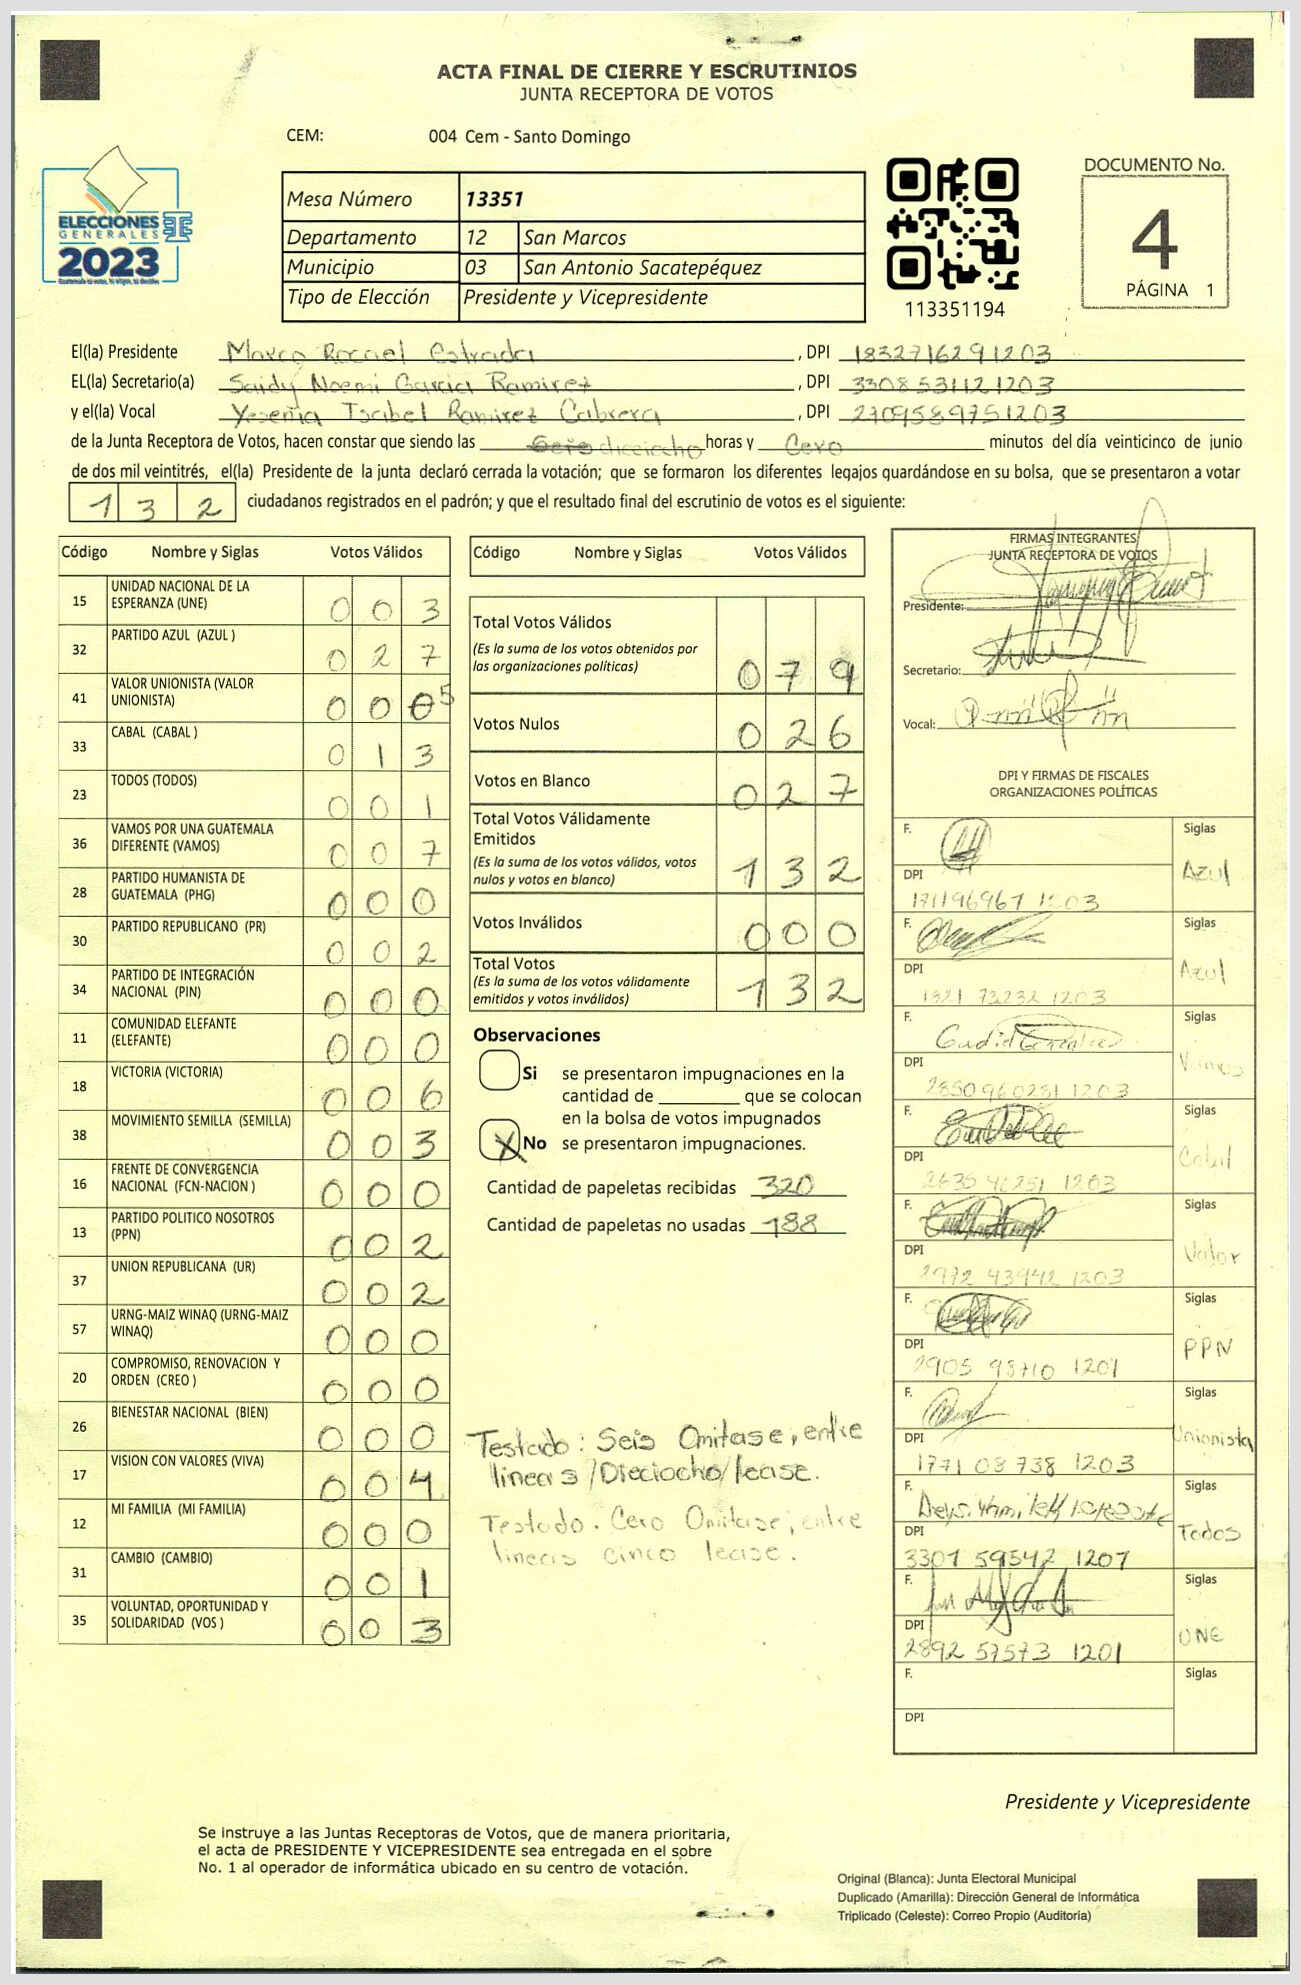 ACTA FINAL DE CIERRE Y ESCRUTINIOS
JUNTA RECEPTORA DE VOTOS
CEM: 004 Cem - Santo Domingo
ELECCIONES
GENERALES
2023
Mesa Número 13351
Departamento 12 San Marcos
Municipio 03 San Antonio Sacatepéquez
Tipo de Elección Presidente y Vicepresidente
113351194
DOCUMENTO No.
4
PÁGINA 1
El(la) Presidente Marco Rocael Estrada, DPI 1832716291203
EL(la) Secretario(a) Saidy Noemi Garcia Ramirez, DPI 3308531121203
y el(la) Vocal Yesenia Isabel Ramirez Cabrera, DPI 2709589751203
de la Junta Receptora de Votos, hacen constar que siendo las dieciocho horas y Cero minutos del día veinticinco de junio
de dos mil veintitrés, el(la) Presidente de la junta declaró cerrada la votación; que se formaron los diferentes legajos guardándose en su bolsa, que se presentaron a votar
132 ciudadanos registrados en el padrón; y que el resultado final del escrutinio de votos es el siguiente:
Código Nombre y Siglas Votos Válidos
15 UNIDAD NACIONAL DE LA ESPERANZA (UNE) 003
32 PARTIDO AZUL (AZUL ) 027
41 VALOR UNIONISTA (VALOR UNIONISTA) 0005
33 CABAL (CABAL ) 013
23 TODOS (TODOS) 001
36 VAMOS POR UNA GUATEMALA DIFERENTE (VAMOS) 007
28 PARTIDO HUMANISTA DE GUATEMALA (PHG) 000
30 PARTIDO REPUBLICANO (PR) 002
34 PARTIDO DE INTEGRACIÓN NACIONAL (PIN) 000
11 COMUNIDAD ELEFANTE (ELEFANTE) 000
18 VICTORIA (VICTORIA) 006
38 MOVIMIENTO SEMILLA (SEMILLA) 003
16 FRENTE DE CONVERGENCIA NACIONAL (FCN-NACION ) 000
13 PARTIDO POLITICO NOSOTROS (PPN) 002
37 UNION REPUBLICANA (UR) 002
57 URNG-MAIZ WINAQ (URNG-MAIZ WINAQ) 000
20 COMPROMISO, RENOVACION Y ORDEN (CREO ) 000
26 BIENESTAR NACIONAL (BIEN) 000
17 VISION CON VALORES (VIVA) 004
12 MI FAMILIA (MI FAMILIA) 000
31 CAMBIO (CAMBIO) 001
35 VOLUNTAD, OPORTUNIDAD Y SOLIDARIDAD (VOS ) 003
Código Nombre y Siglas Votos Válidos
Total Votos Válidos 079
(Es la suma de los votos obtenidos por
las organizaciones políticas)
Votos Nulos 026
Votos en Blanco 027
Total Votos Válidamente
Emitidos
(Es la suma de los votos válidos, votos
nulos y votos en blanco) 132
Votos Inválidos 000
Total Votos
(Es la suma de los votos válidamente
emitidos y votos inválidos) 132
Observaciones
Si se presentaron impugnaciones en la
cantidad de ________ que se colocan
en la bolsa de votos impugnados
X No se presentaron impugnaciones.
Cantidad de papeletas recibidas 320
Cantidad de papeletas no usadas 188
Testado: Seis Omitase, entre
lineas /Dieciocho/ lease.
Testado. Cero Omitase, entre
lineas cinco lease.
FIRMAS INTEGRANTES
JUNTA RECEPTORA DE VOTOS
Presidente:
Secretario:
Vocal:
DPI Y FIRMAS DE FISCALES
ORGANIZACIONES POLÍTICAS
F. Siglas
Azul
DPI
F. Siglas
Azul
DPI
1321 73232 1203
F. Siglas
Vamos
DPI
2850960231 1203
F. Siglas
Cabal
DPI
F. Siglas
Valor
DPI
2972 43942 1203
F. Siglas
PPN
DPI
2905 98710 1201
F. Siglas
Unionista
DPI
1771 08738 1203
F. Siglas
Todos
DPI
3301 59542 1207
F. Siglas
UNE
DPI
2892 57573 1201
F. Siglas
DPI
Presidente y Vicepresidente
Se instruye a las Juntas Receptoras de Votos, que de manera prioritaria,
el acta de PRESIDENTE Y VICEPRESIDENTE sea entregada en el sobre
No. 1 al operador de informática ubicado en su centro de votación.
Original (Blanca): Junta Electoral Municipal
Duplicado (Amarilla): Dirección General de Informática
Triplicado (Celeste): Correo Propio (Auditoría)